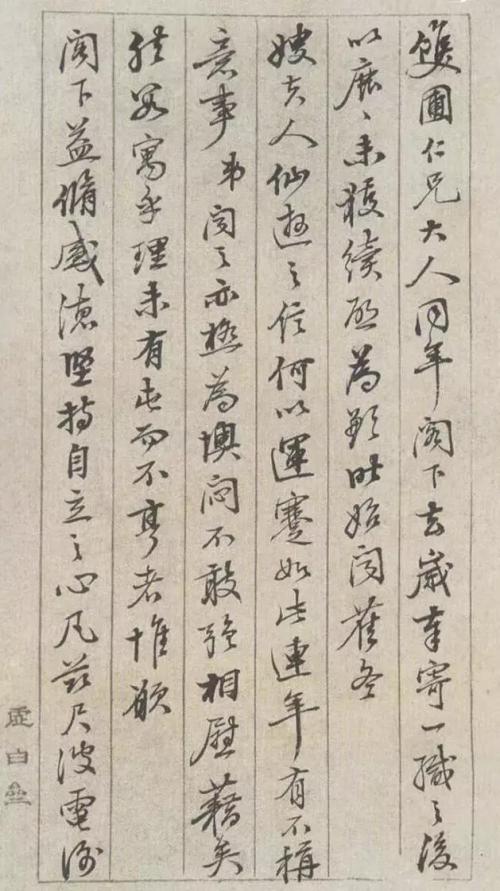 雙圃仁兄大人同年閣下去歲奉寄一緘之後
以塵塵未獲續啟為歉昨始聞舊冬
嫂夫人仙逝之信何以運蹇如此連年有不稱
意事弟聞之亦極為懊悶不敢強相慰藉矣
然略寓承理未有屯而不亨者惟願
閣下益脩盛德堅持自立之心凡茲尺波電謝
虛白齋